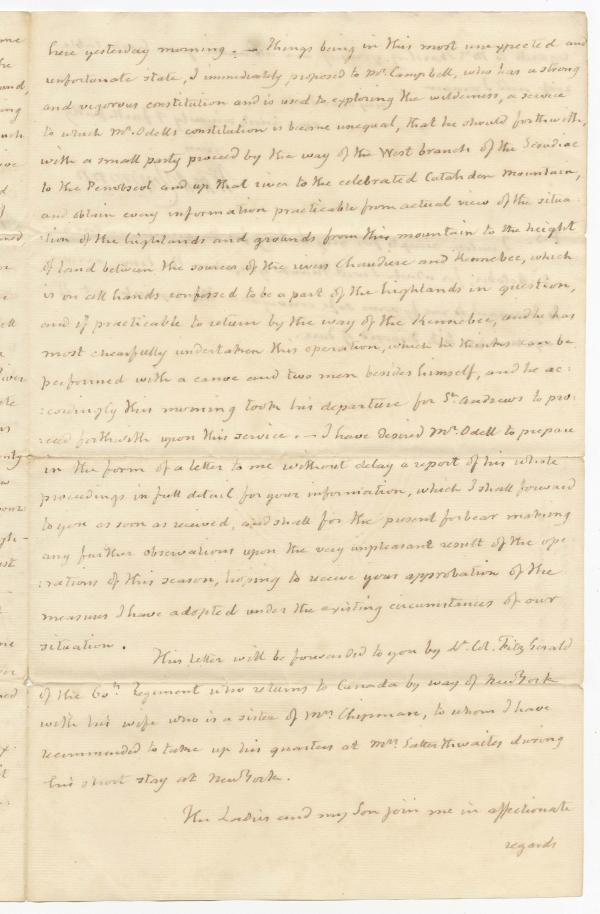 here yesterday morning. — Things being in this most unexpected and
unfortunate state, I immediately proposed to Mr. Campbell, who has a strong
and vigorous constitution and is used to exploring the wilderness, a service
to which Mr. Odell's constitution is become unequal, that he should forthwith,
with a small party proceed by the way of the West branch of the Scoudiac
to the Penobscot and up that river to the celebrated Catahden Mountain,
and obtain every information practicable from actual view of the situa-
:tion of the highlands and grounds from this mountain to the height
of land between the sources of the rivers Chaudiere and Kennebec, which
is on all hands confessed to be a part of the highlands in question,
and if practicable to return by the way of the Kennebec, and he has
most chearfully undertaken this operation, which he thinks can be
performed with a canoe and two men besides himself, and he ac:
:cordingly this morning took his departure for St. Andrews to pro:
:ceed forthwith upon this service. — I have desired Mr. Odell to prepare
in the form of a letter to me without delay a report of his whole
proceedings in full detail for your information, which I shall forward
to you as soon as received, and shall for the present forbear making
any further observations upon the very unpleasant result of the ope:
:rations of this season, hoping to receive your approbation of the
measures I have adopted under the existing circumstances of our
situation.
This letter will be forwarded to you by Lt. Col. Fitz Gerald
of the 60th Regiment who returns to Canada by way of New York
with his wife who is a sister of Mrs. Chipman, to whom I have
recommended to take up his quarters at Mrs. Satterthwaites during
his short stay at New York.
The Ladies and my Son join me in affectionate
regards